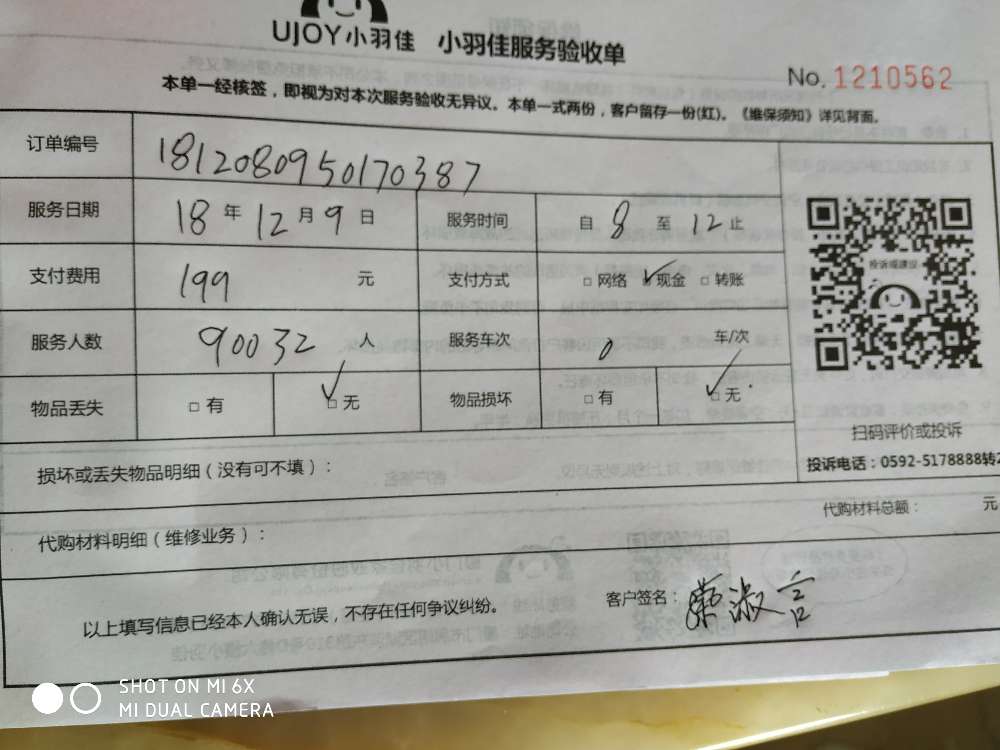 UJOY小羽佳 小羽佳服务验收单
No. 1210562
本单一经核签，即视为对本次服务验收无异议。本单一式两份，客户留存一份(红)。《维保须知》详见背面。
订单编号 181208095017038​7
服务日期 18 年 12 月 9 日 服务时间 自 8 至 12 止
支付费用 199 元 支付方式 □ 网络 ✓ 现金 □ 转账
服务人数 90032 人 服务车次 0 车/次
物品丢失 □ 有 ✓ 无 物品损坏 □ 有 ✓ 无
投诉或建议
扫码评价或投诉
投诉电话：0592-5178888转2
损坏或丢失物品明细（没有可不填）：
代购材料明细（维修业务）： 代购材料总额： 元
以上填写信息已经本人确认无误，不存在任何争议纠纷。 客户签名：
SHOT ON MI 6X
MI DUAL CAMERA